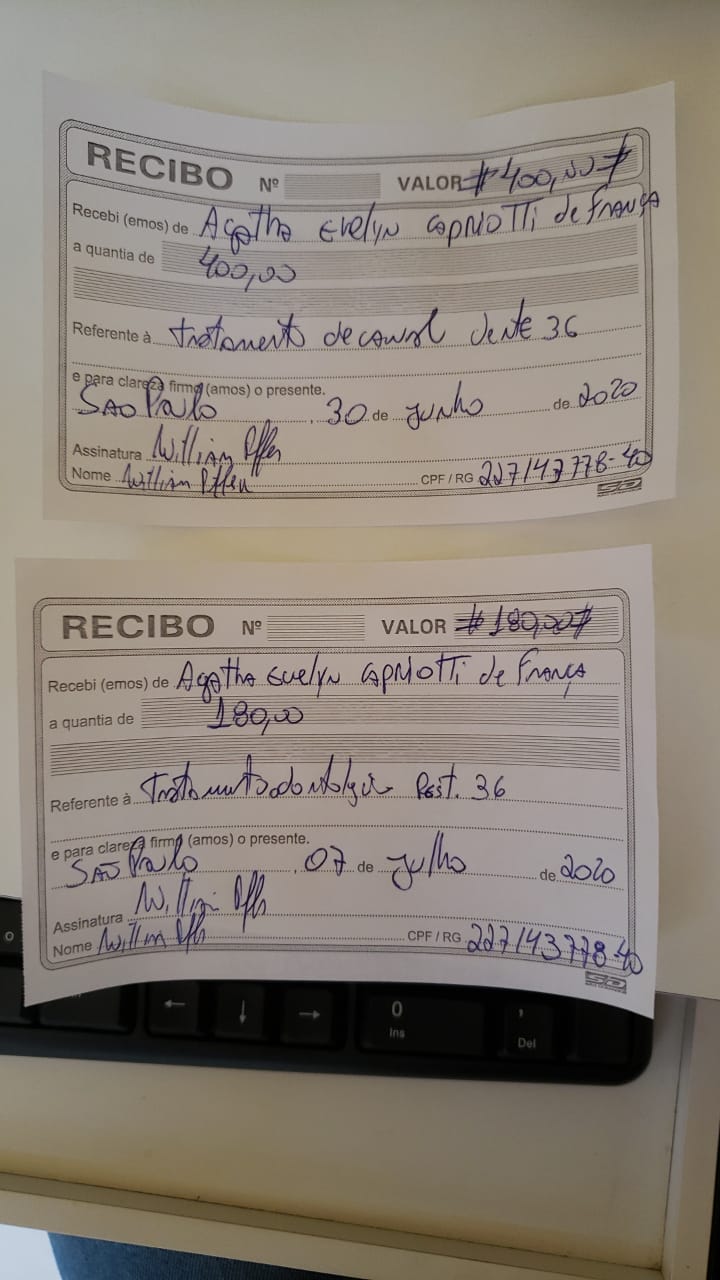 RECIBO Nº VALOR #400,00#
Recebi (emos) de Agatha Evelyn Capriotti de França
a quantia de 400,00
Referente à tratamento de canal dente 36
e para clareza firmo (amos) o presente.
São Paulo, 30 de Junho de 2020
Assinatura William
Nome William CPF / RG 227143778-40
SD
RECIBO Nº VALOR #180,00#
Recebi (emos) de Agatha Evelyn Capriotti de França
a quantia de 180,00
Referente à Tratamento odontologico Rest. 36
e para clareza firmo (amos) o presente.
São Paulo, 07 de Julho de 2020
Assinatura William
Nome William CPF / RG 227143778-40
SD
← ↓ → 0 ,
Ins Del